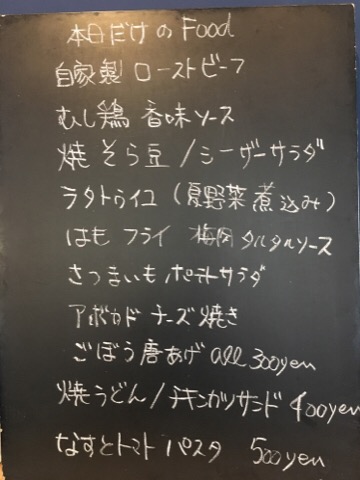 本日だけの Food
自家製 ローストビーフ
むし鶏 香味ソース
焼 そら豆 / シーザーサラダ
ラタトゥイユ (夏野菜煮込み)
はも フライ 梅肉 タルタルソース
さつまいも ポテトサラダ
アボカド チーズ焼き
ごぼう唐あげ all 300yen
焼うどん / チキンカツサンド 400yen
なすとトマト パスタ 500yen